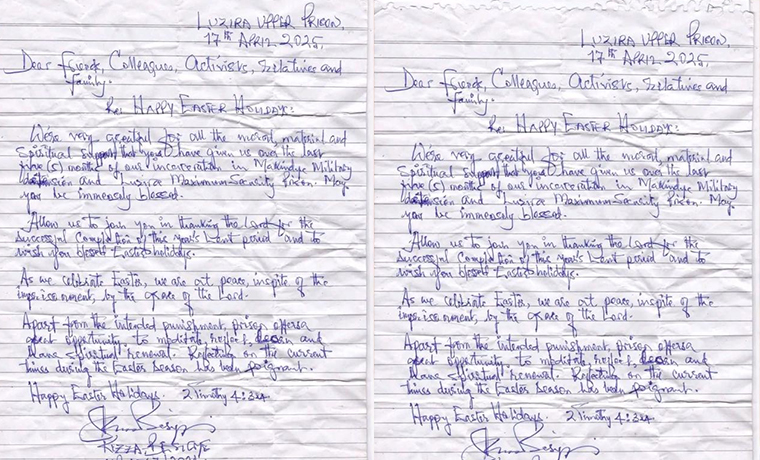 LUZIRA UPPER PRISON,
17TH APRIL 2025,
Dear friends, Colleagues, Activists, Relatives and
family.
Re: HAPPY EASTER HOLIDAY:
We're very grateful for all the moral, material and
Spiritual support that you have given us over the last
five(5) months of our incarceration in Makindye Military
and Luzira Maximum Security prison. May
you be immensely blessed.
Allow us to join you in thanking the Lord for the
Successful Completion of this year's Lent period and to
wish you blessed Easter holidays.
As we celebrate Easter, we are at peace, inspite of the
imprisonment, by the grace of the Lord.
Apart from the intended punishment, prison offers a
great opportunity to meditate, reflect, and
spiritual renewal. Reflecting on the current
times during the Easter Season has been poignant.
Happy Easter Holidays. 2 Timothy 4:
KIZZA BESIGYE
LUZIRA UPPER PRISON,
17TH APRIL 2025,
Dear friends, Colleagues, Activists, Relatives and
family.
Re: HAPPY EASTER HOLIDAY:
We're very grateful for all the moral, material and
Spiritual support that you have given us over the last
five(5) months of our incarceration in Makindye Military
and Luzira Maximum Security prison. May
you be immensely blessed.
Allow us to join you in thanking the Lord for the
Successful Completion of this year's Lent period and to
wish you blessed Easter holidays.
As we celebrate Easter, we are at peace, inspite of the
imprisonment, by the grace of the Lord.
Apart from the intended punishment, prison offers a
great opportunity to meditate, reflect, and
spiritual renewal. Reflecting on the current
times during the Easter Season has been poignant.
Happy Easter Holidays. 2 Timothy 4: